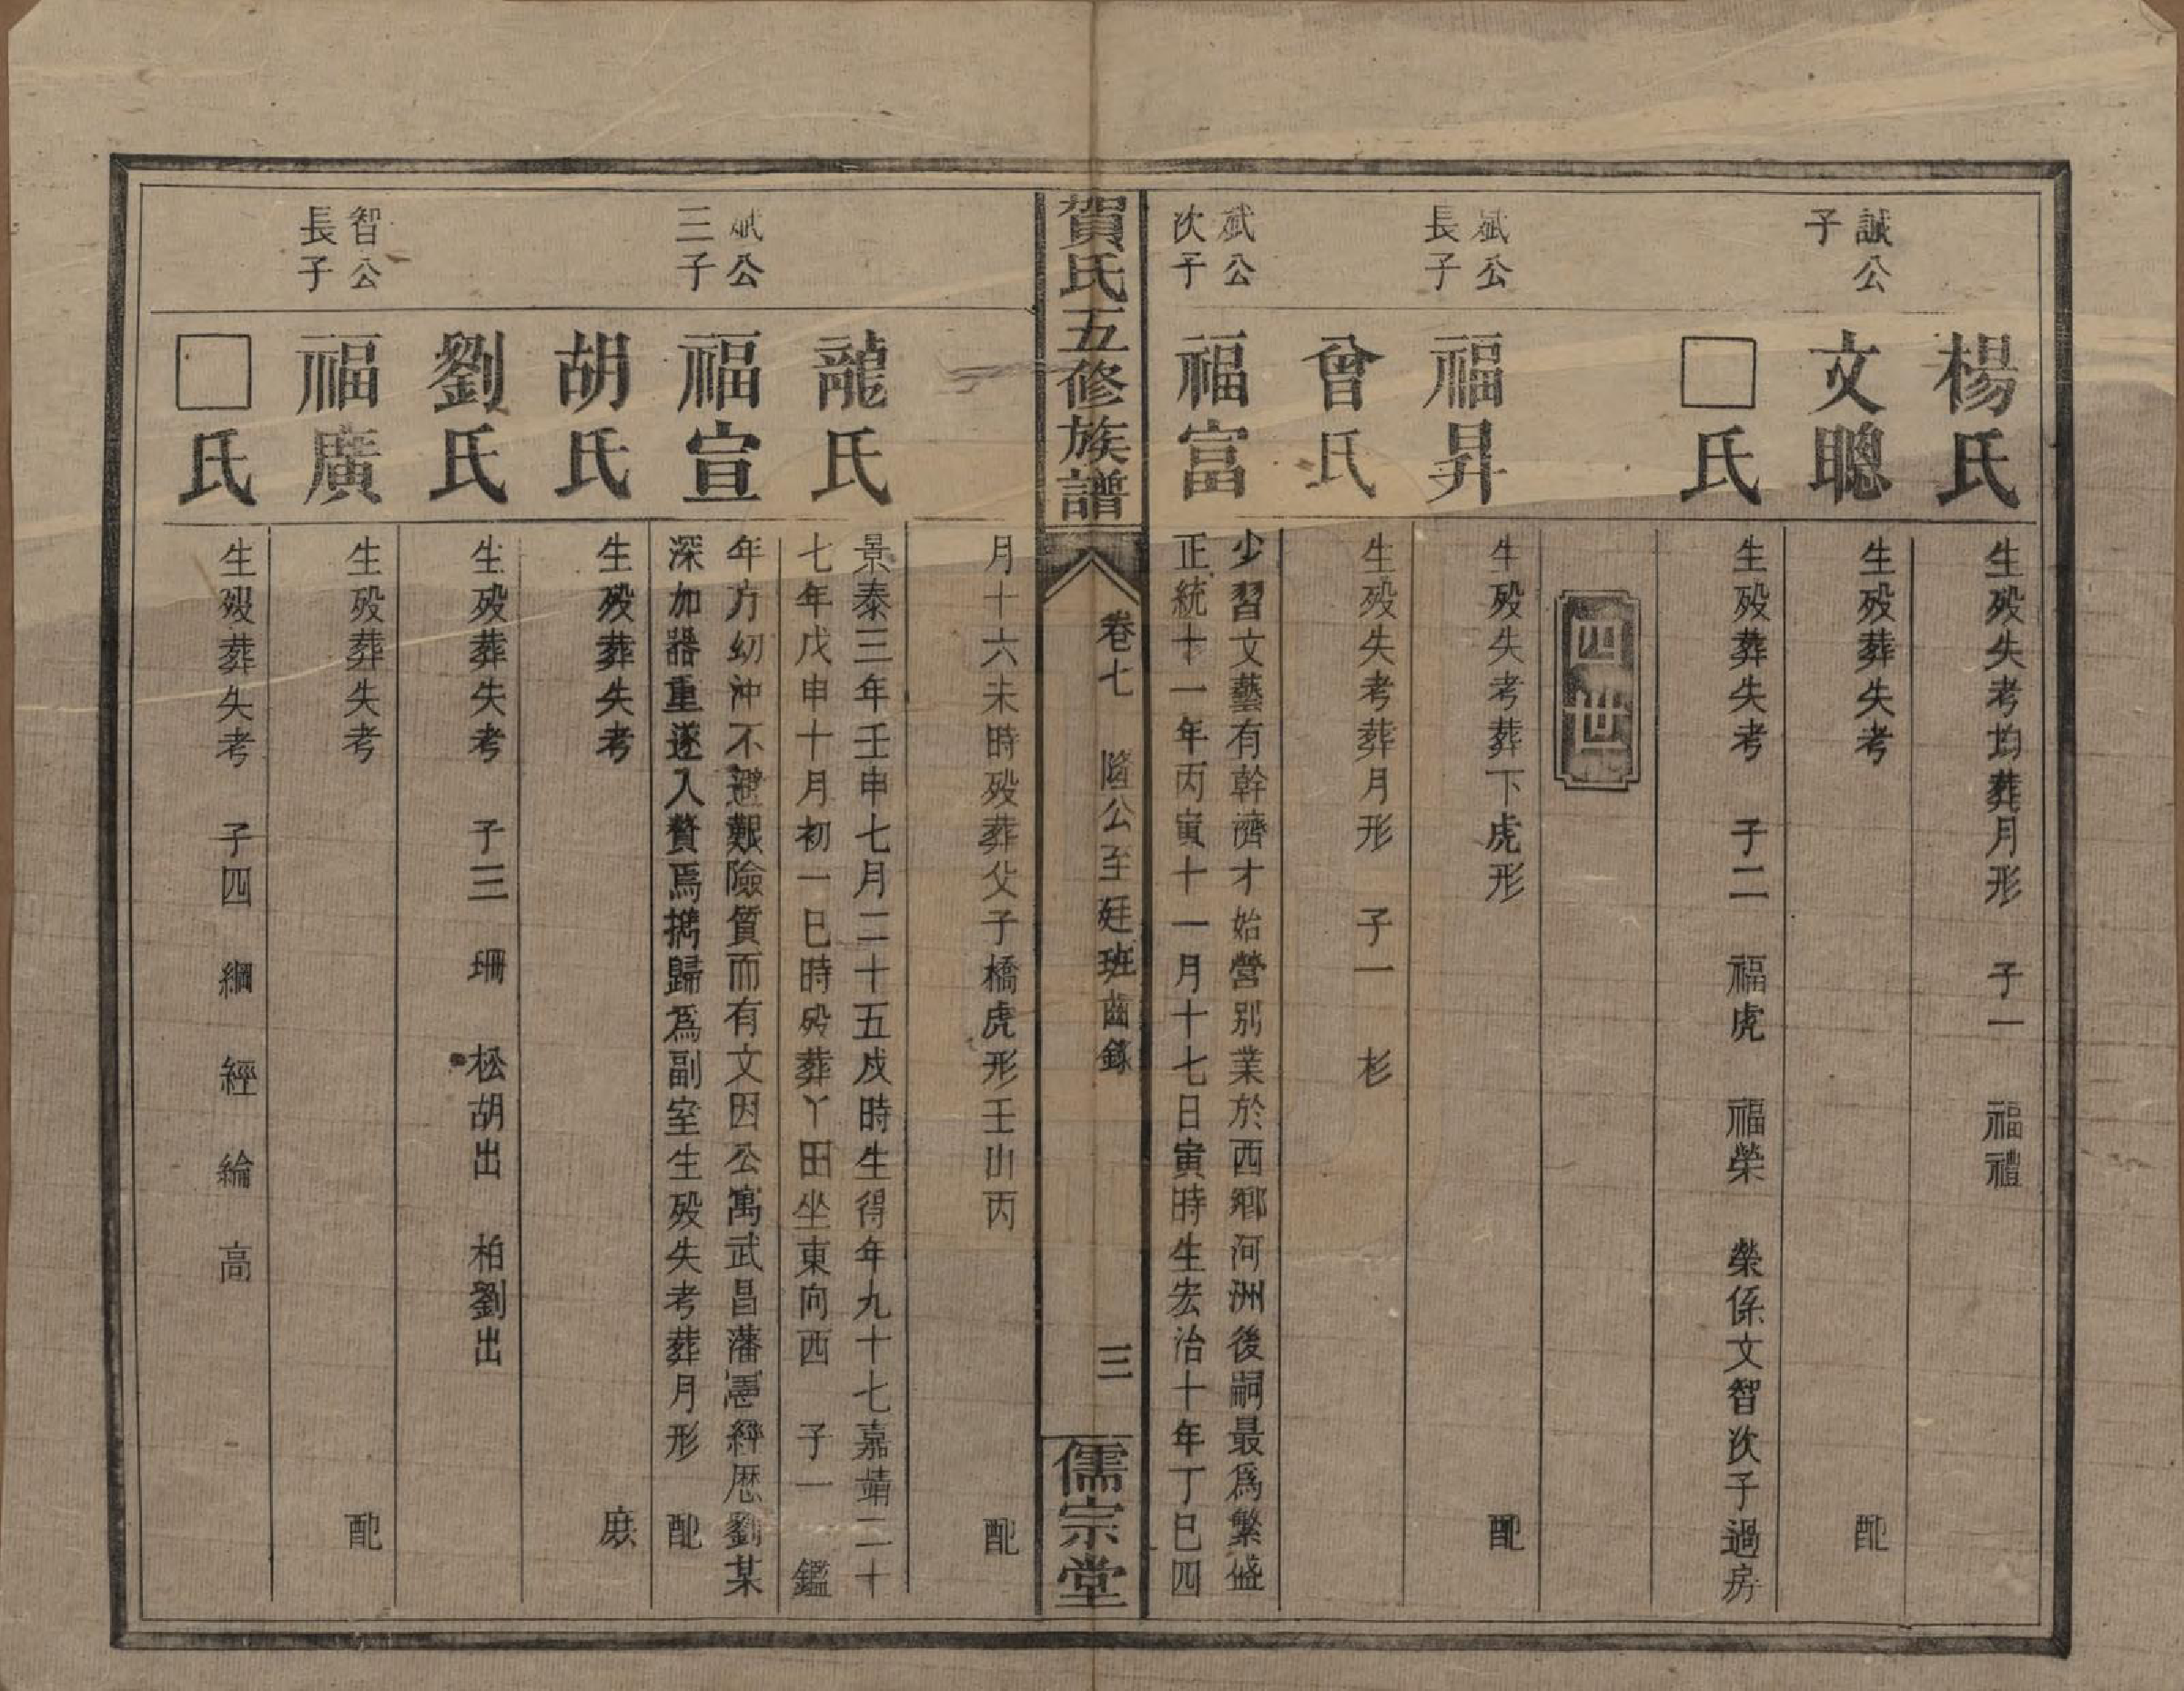 楊氏
生殁失考均葬月形　子一　福禮
誠公
子
文聰
生殁葬失考　配
□氏
生殁葬失考　子二　福虎　福榮　榮係文智次子過房
四世
斌公
長子
福昇
生殁失考葬下虎形　配
曾氏
生殁失考葬月形　子一　杉
斌公
次子
福富
少習文藝有幹濟才始營別業於西鄉河洲後嗣最爲繁盛
正統十一年丙寅十一月十七日寅時生宏治十年丁巳四
賀氏五修族譜
卷七　隆公至廷班齒錄　三
儒宗堂
月十六未時殁葬父子橋虎形壬山丙　配
龍氏
景泰三年壬申七月二十五戌時生得年九十七嘉靖二十
七年戊申十月初一巳時殁葬丫田坐東向西　子一　鑑
斌公
三子
福宣
年方幼沖不避艱險質而有文因公寓武昌藩憲經歷劉某
深加器重遂入贅焉攜歸爲副室生殁失考葬月形　配
胡氏
生殁葬失考　庶
劉氏
生殁葬失考　子三　珊　松胡出　柏劉出
智公
長子
福廣
生殁葬失考　配
□氏
生殁葬失考　子四　綱　經　綸　高